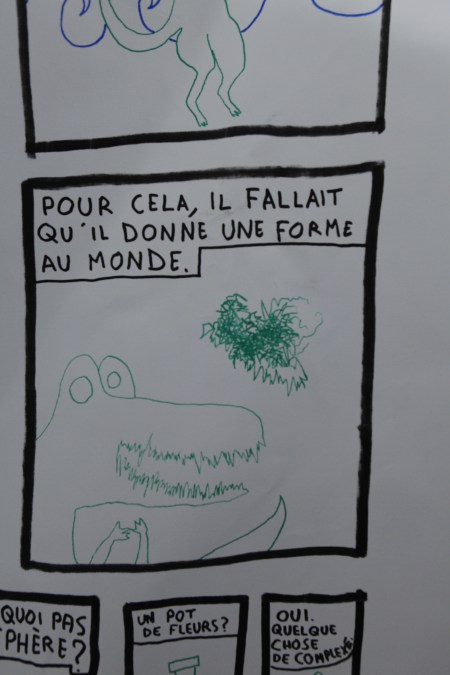 POUR CELA, IL FALLAIT
QU'IL DONNE UNE FORME
AU MONDE.
QUOI PAS
SPHÈRE?
UN POT
DE FLEURS?
OUI.
QUELQUE
CHOSE
DE COMPLEXE.